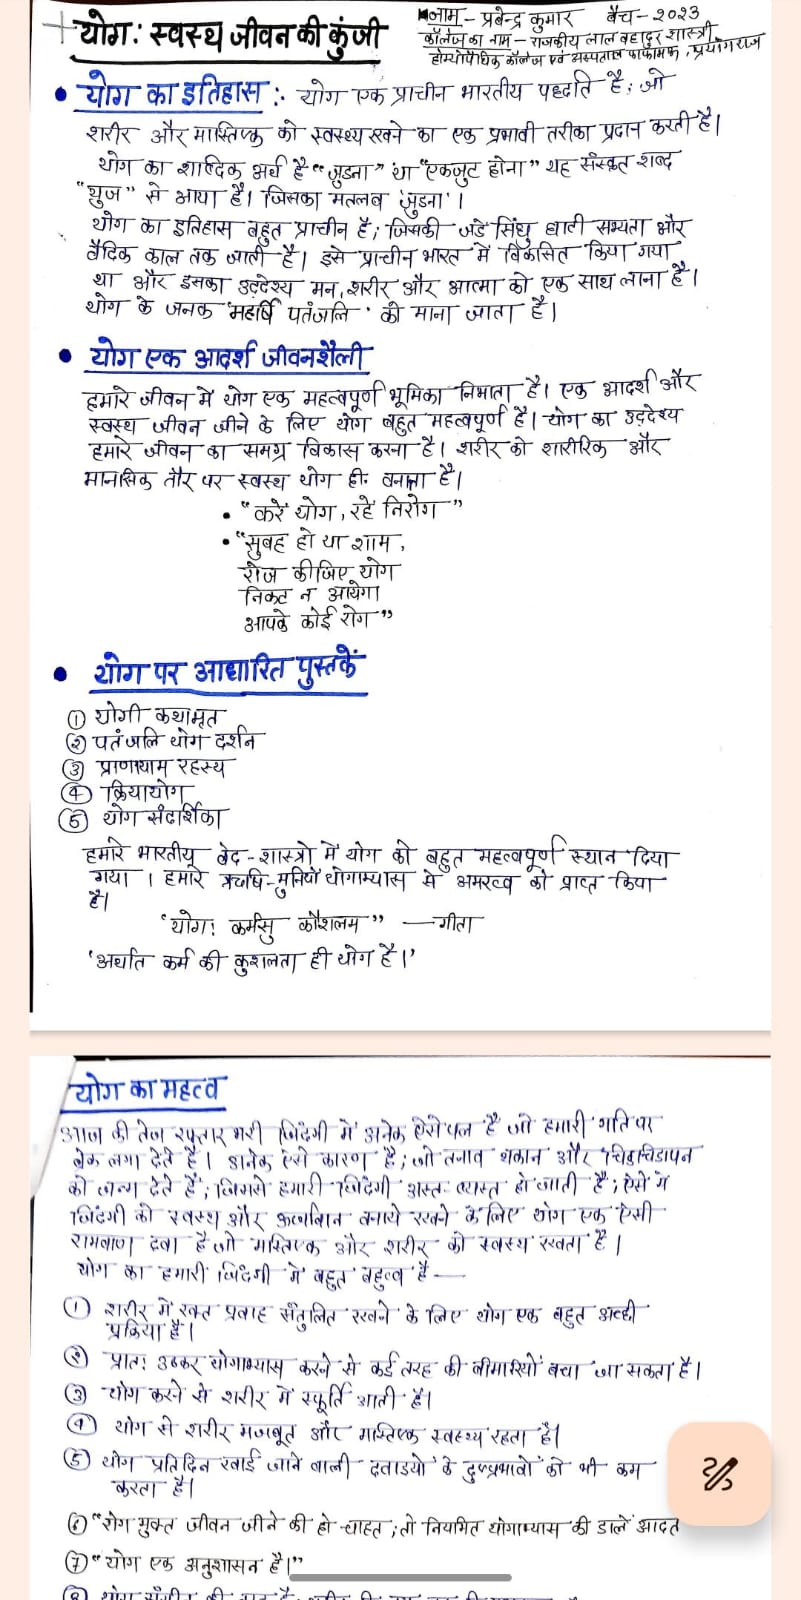 योग: स्वस्थ जीवन की कुंजी
नाम - प्रबेन्द्र कुमार बैच - २०२३
कॉलेज का नाम - राजकीय लाल बहादुर शास्त्री
होम्योपैथिक कॉलेज एवं अस्पताल फाफामऊ, प्रयागराज
• योग का इतिहास :- योग एक प्राचीन भारतीय पद्धति है; जो
शरीर और मास्तिष्क को स्वस्थ्य रखने का एक प्रभावी तरीका प्रदान करती है।
योग का शाब्दिक अर्थ है "जुड़ना" या "एकजुट होना" यह संस्कृत शब्द
"युज" से आया है। जिसका मतलब 'जुड़ना'।
योग का इतिहास बहुत प्राचीन है; जिसकी जडे सिंधु घाटी सभ्यता और
वैदिक काल तक जाती है। इसे प्राचीन भारत में विकसित किया गया
था और इसका उद्देश्य मन, शरीर और आत्मा को एक साथ लाना है।
योग के जनक 'महर्षि पतंजलि' को माना जाता है।
• योग एक आदर्श जीवनशैली
हमारे जीवन में योग एक महत्वपूर्ण भूमिका निभाता है। एक आदर्श और
स्वस्थ जीवन जीने के लिए योग बहुत महत्वपूर्ण है। योग का उद्देश्य
हमारे जीवन का समग्र विकास करना है। शरीर को शारीरिक और
मानसिक तौर पर स्वस्थ योग ही बनाता है।
• "करें योग, रहें निरोग"
• "सुबह हो या शाम,
रोज कीजिए योग
निकट न आयेगा
आपके कोई रोग"
• योग पर आधारित पुस्तकें
① योगी कथामृत
② पतंजलि योग दर्शन
③ प्राणायाम रहस्य
④ क्रियायोग
⑤ योग संदर्शिका
हमारे भारतीय वेद-शास्त्रो में योग को बहुत महत्वपूर्ण स्थान दिया
गया । हमारे ऋषि-मुनियों योगाभ्यास से अमरत्व को प्राप्त किया
है।
'योगः कर्मसु कौशलम" — गीता
'अर्थात कर्म की कुशलता ही योग है।'
योग का महत्व
आज की तेज रफ्तार भरी जिंदगी में अनेक ऐसे पल है जो हमारी गति पर
ब्रेक लगा देते है। अनेक ऐसे कारण है; जो तनाव थकान और चिड़चिडापन
को जन्म देते है; जिससे हमारी जिंदगी अस्त-व्यस्त हो जाती है; ऐसे में
जिंदगी को स्वस्थ और ऊर्जावान बनाये रखने के लिए योग एक ऐसी
रामबाण दवा है जो मस्तिष्क और शरीर को स्वस्थ रखता है।
योग का हमारी जिंदगी में बहुत महत्व है —
① शरीर में रक्त प्रवाह संतुलित रखने के लिए योग एक बहुत अच्छी
प्रक्रिया है।
② प्रातः उठकर योगाभ्यास करने से कई तरह की बीमारियों बचा जा सकता है।
③ योग करने से शरीर में स्फूर्ति आती है।
④ योग से शरीर मजबूत और मास्तिष्क स्वस्थ्य रहता है।
⑤ योग प्रतिदिन खाई जाने वाली दवाइयो के दुष्प्रभावों को भी कम
करता है।
⑥ "रोग मुक्त जीवन जीने की हो चाहत; तो नियमित योगाभ्यास की डाले आदत
⑦ "योग एक अनुशासन है।"